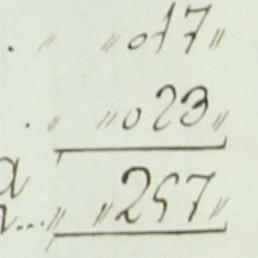 . " "017"
. " "023"
a
... " "257"